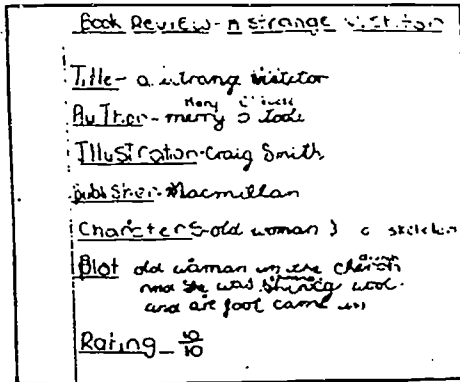 Book Review - A strange visitor
Title - a strang visitor
Auther - merry O Toole
Illustrator - Craig Smith
Publisher - Macmillan
Characters - old woman & a skeleton
Blot old woman in the church
and she was wool
and one foot came in
Rating - 10/10